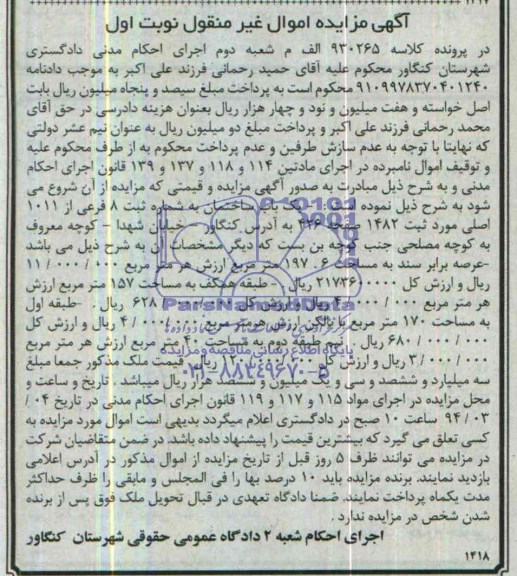 آگهی مزایده اموال غیر منقول نوبت اول
در پرونده کلاسه ۹۳۰۲۶۵ الف م شعبه دوم اجرای احکام مدنی دادگستری
شهرستان کنگاور محکوم علیه آقای حمید رحمانی فرزند علی اکبر به موجب دادنامه
۹۱۰۹۹۷۸۳۷۰۴۰۱۲۴۰ محکوم است به پرداخت مبلغ سیصد و پنجاه میلیون ریال بابت
اصل خواسته و هفت میلیون و نود و چهار هزار ریال بعنوان هزینه دادرسی در حق آقای
محمد رحمانی فرزند علی اکبر و پرداخت مبلغ دو میلیون ریال به عنوان نیم عشر دولتی
که نهایتا با توجه به عدم سازش طرفین و عدم پرداخت محکوم به از طرف محکوم علیه
و توقیف اموال نامبرده در اجرای مادتین ۱۱۴ و ۱۱۸ و ۱۳۷ و ۱۳۹ قانون اجرای احکام
مدنی و به شرح ذیل مبادرت به صدور آگهی مزایده و قیمتی که مزایده از آن شروع می
شود به شرح ذیل نموده است: یک باب ساختمان به شماره ثبت ۸ فرعی از ۱۰۱۱
اصلی مورد ثبت ۱۴۸۲ صفحه ۴۴۶ به آدرس کنگاور - خیابان شهدا - کوچه معروف
به کوچه مصلحی جنب کوچه بن بست که دیگر مشخصات آن به شرح ذیل می باشد
-عرصه برابر سند به مساحت ۱۹۷/۶ متر مربع ارزش هر متر مربع ۱۱/۰۰۰/۰۰۰
ریال و ارزش کل ۲۱۷۳۶۰۰۰۰۰ ریال - طبقه همکف به مساحت ۱۵۷ متر مربع ارزش
هر متر مربع ۴/۰۰۰/۰۰۰ ریال و ارزش کل ۶۲۸/۰۰۰/۰۰۰ ریال -طبقه اول
به مساحت ۱۷۰ متر مربع با بالکن ارزش هر متر مربع ۴/۰۰۰/۰۰۰ ریال و ارزش کل
۶۸۰/۰۰۰/۰۰۰ ریال . نیم طبقه دوم به مساحت ۴۰ متر مربع ارزش هر متر مربع
۳/۰۰۰/۰۰۰ ریال و ارزش کل ریال قیمت ملک مذکور جمعا مبلغ
سه میلیارد و ششصد و سی و یک میلیون و ششصد هزار ریال میباشد . تاریخ و ساعت و
محل مزایده در اجرای مواد ۱۱۵ و ۱۱۷ و ۱۱۹ قانون اجرای احکام مدنی در تاریخ ۰۴/
۹۴/۰۳ ساعت ۱۰ صبح در دادگستری اعلام میگردد بدیهی است اموال مورد مزایده به
کسی تعلق می گیرد که بیشترین قیمت را پیشنهاد داده باشد. در ضمن متقاضیان شرکت
در مزایده می توانند ظرف ۵ روز قبل از تاریخ مزایده از اموال مذکور در آدرس اعلامی
بازدید نمایند. برنده مزایده باید ۱۰ درصد بها را فی المجلس و مابقی را ظرف حداکثر
مدت یکماه پرداخت نمایند. ضمنا دادگاه تعهدی در قبال تحویل ملک فوق پس از برنده
شدن شخص در مزایده ندارد .
اجرای احکام شعبه ۲ دادگاه عمومی حقوقی شهرستان کنگاور
۱۴۱۸
ParsNamadData
پایگاه اطلاع رسانی مناقصه و مزایده
۰۲۱-۸۸۳۴۹۶۷۰-۵